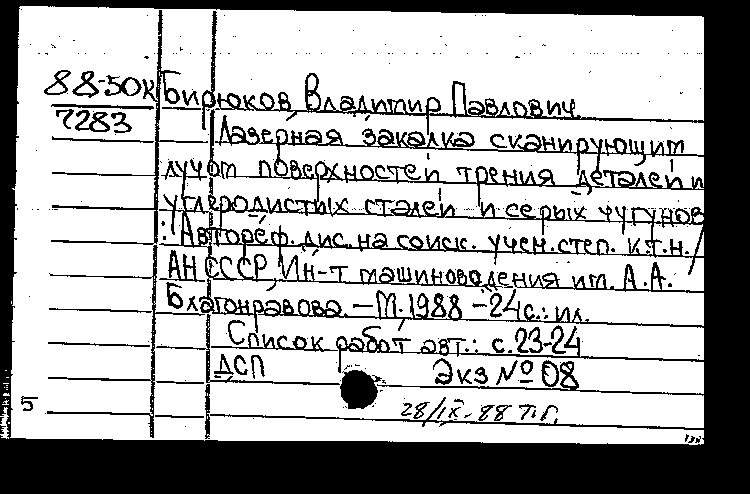 88-50к Бирюков, Владимир Павлович.
7283
Лазерная закалка сканирующим
лучом поверхностей трения деталей и
углеродистых сталей и серых чугунов
: Автореф. дис. на соиск. учен. степ. к.т.н. /
АН СССР, Ин-т машиноведения им. А.А.
Благонравова. — М., 1988 - 24 с.: ил.
Список работ авт.: с. 23-24
ДСП Экз № 08
5
28/IX-88 Т.Г.